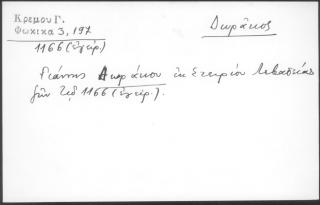 Κρεμου Γ.
Φωκικα 3, 197
1166 (ἐγχειρ.)
Δωράκος
Γιάννης Δωράκου ἐκ Στειρίου Λεβαδείας
ζῶν τῷ 1166 (ἐγχειρ.).